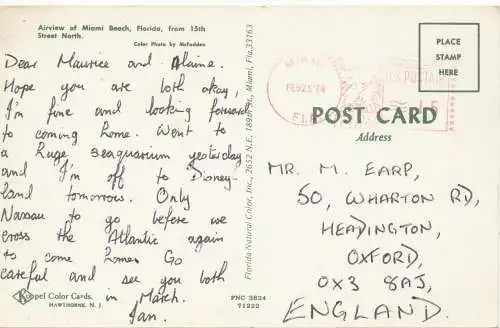 Airview of Miami Beach, Florida, from 15th
Street North.
Color Photo by McFadden
Dear Maurice and Alaina.
Hope you are both okay,
I'm fine and looking forward
to coming home. Went to
a huge seaquarium yesterday
and I'm off to Disney-
land tomorrow. Only
Nassau to go before we
cross the Atlantic again
to come home. Go
careful and see you both
in March.
Ian.
Koppel Color Cards.
HAWTHORNE, N. J.
FNC 3824
71222
Florida Natural Color, Inc., 2652 N.E. 189th St., Miami, Fla. 33163
MIAMI
FEB25'74
FLA
U.S. POSTAGE
.15
PLACE
STAMP
HERE
POST CARD
Address
MR. M. EARP,
50, WHARTON RD,
HEADINGTON,
OXFORD,
OX3 8AJ,
ENGLAND.